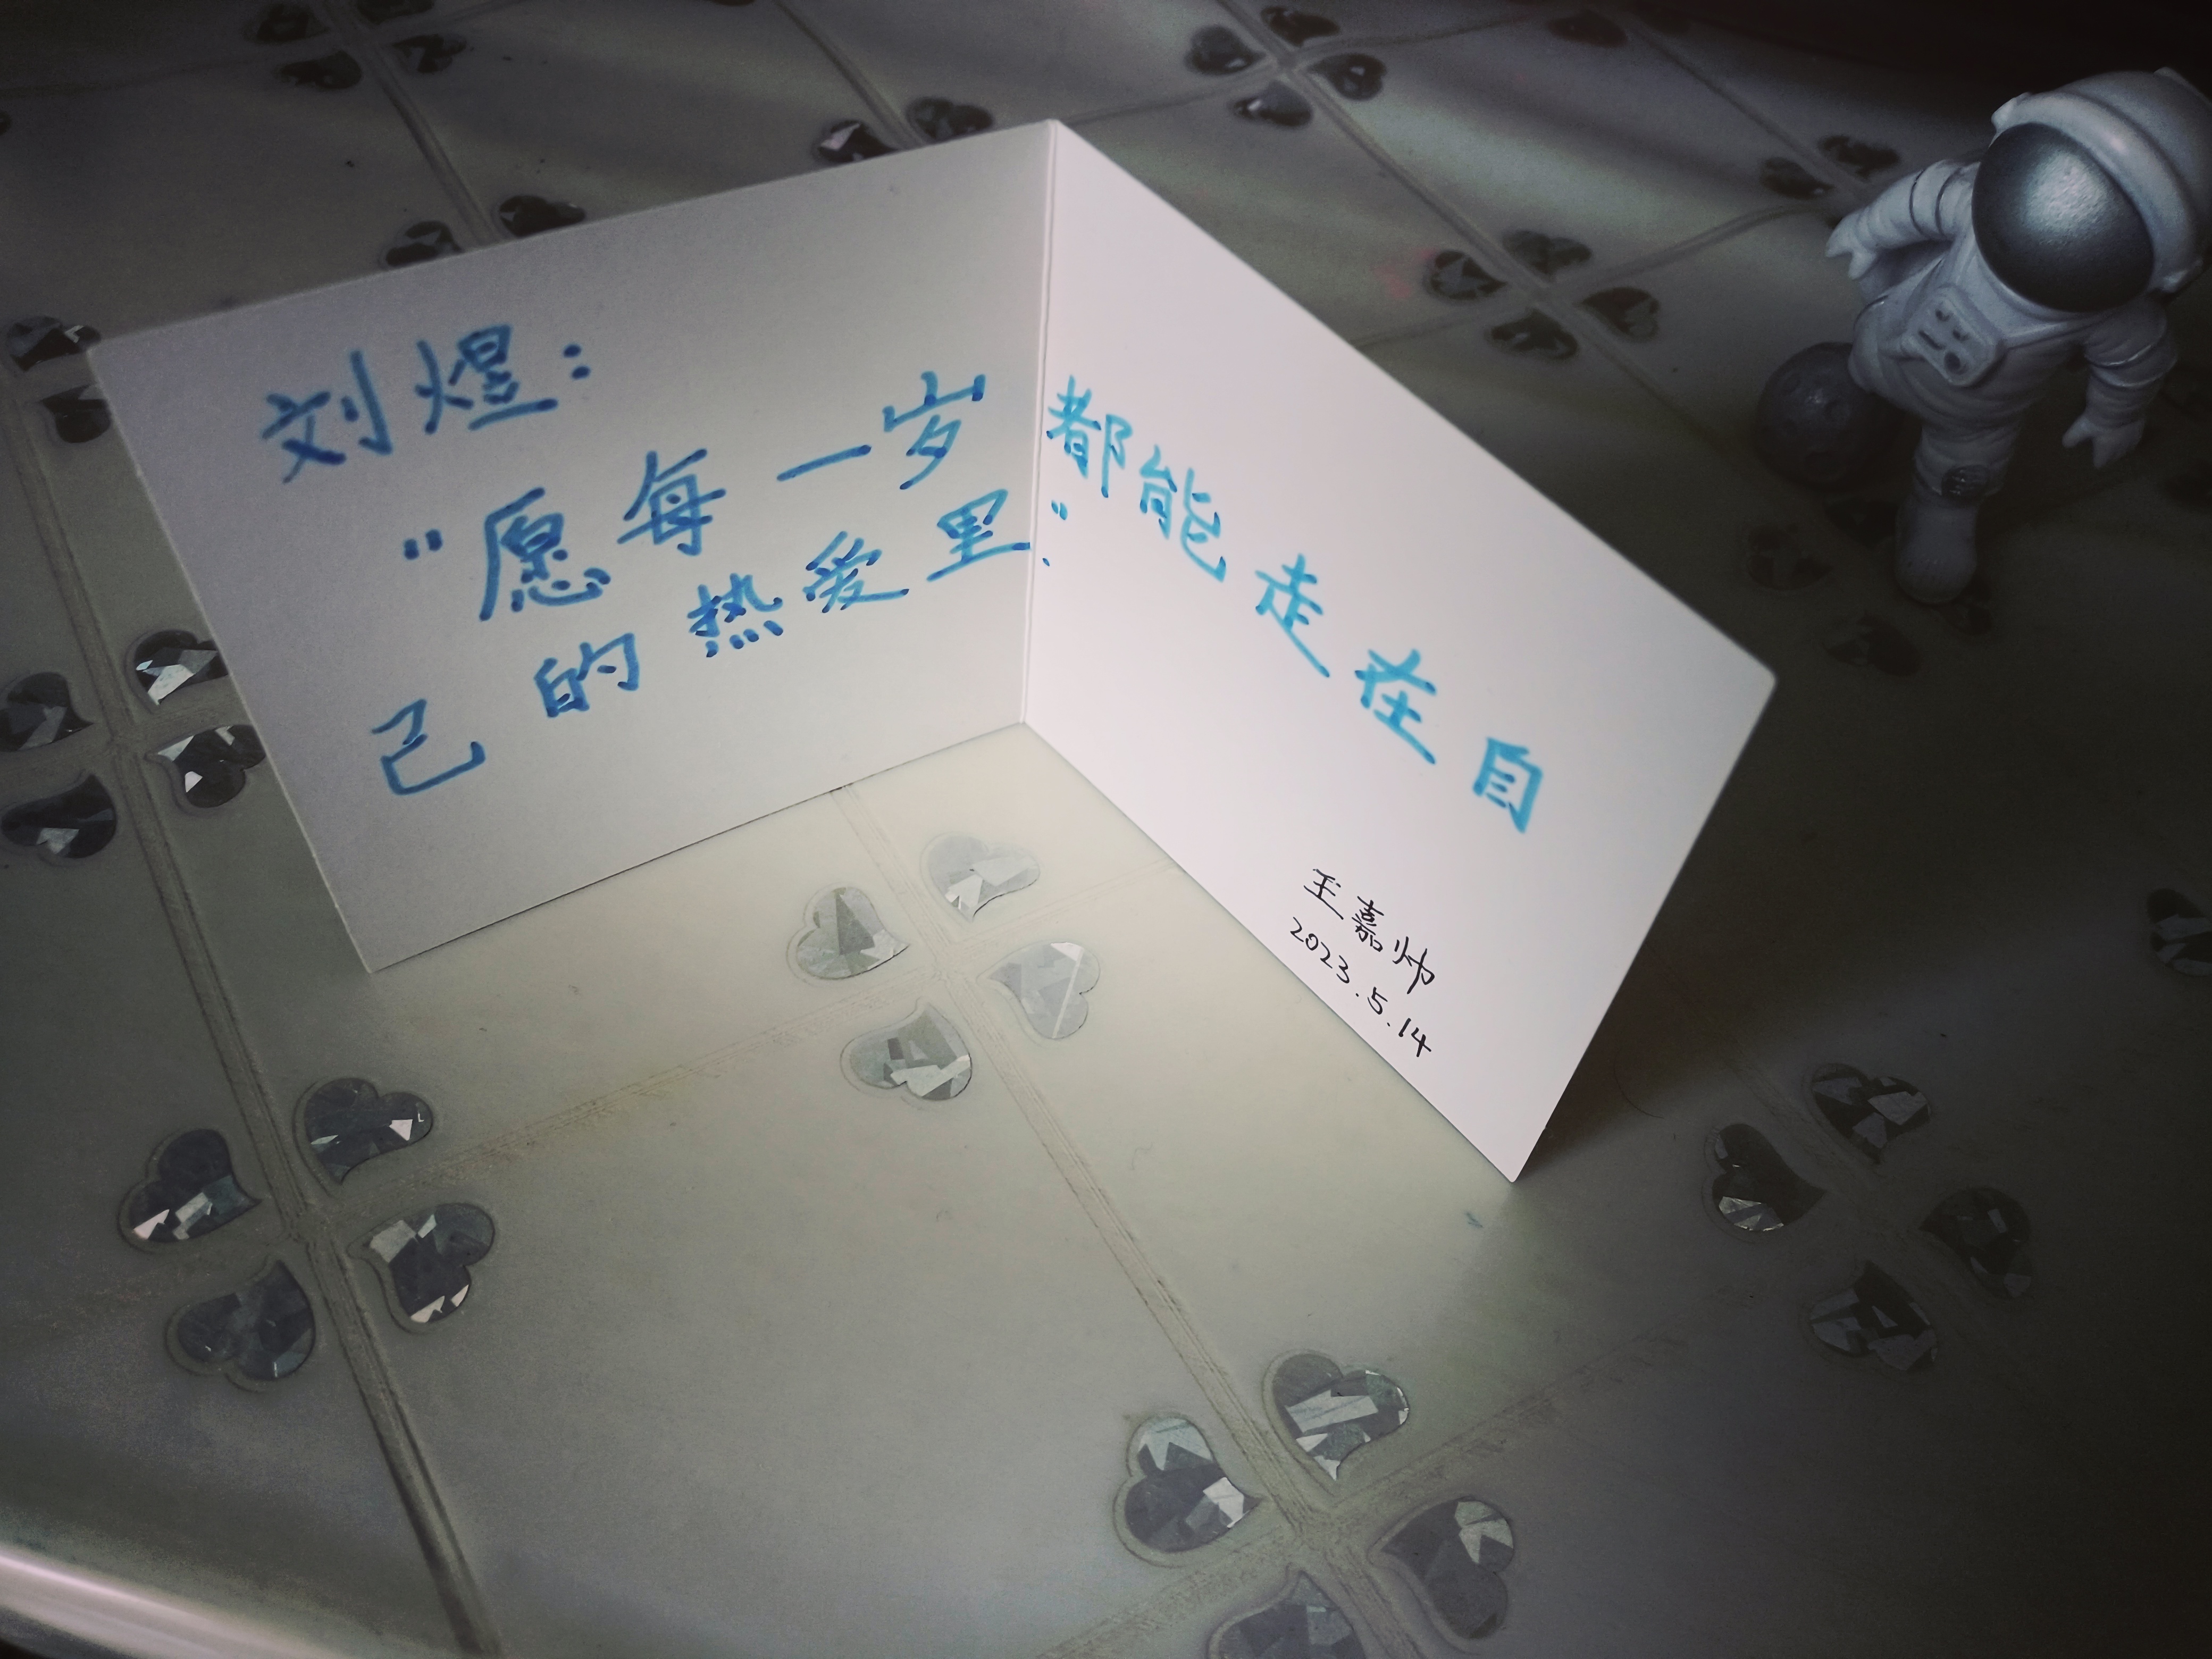 刘煜：
“愿每一岁都能走在自
己的热爱里.”
王嘉帅
2023.5.14